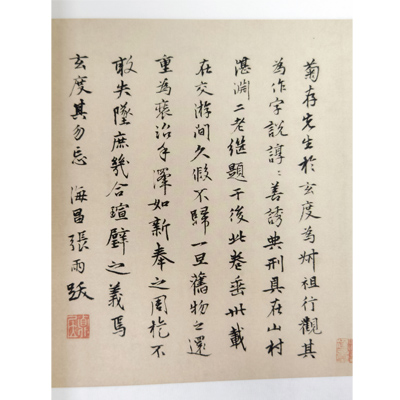 菊存先生於玄度為叔祖行觀其
為作字說諄諄善誘典刑具在山村
湛淵二老继題于後此卷垂卅載
在交游間久假不歸一旦舊物之還
重為裝治手澤如新奉之周旋不
敢失墜庶幾合瑄璧之義焉
玄度其勿忘 海昌張雨跋